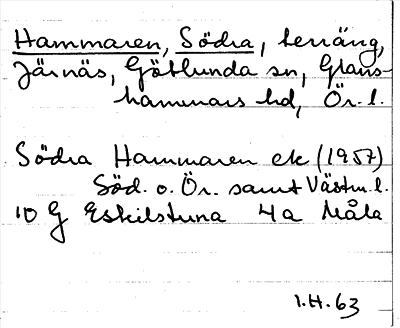 Hammaren, Södra, terräng,
Järnäs, Götlunda sn, Glans-
hammars hd, Ör. l.
Södra Hammaren ek (1957)
Söd. o. Ör. samt Västm. l.
10 G Eskilstuna 4a Måla
1.H.63